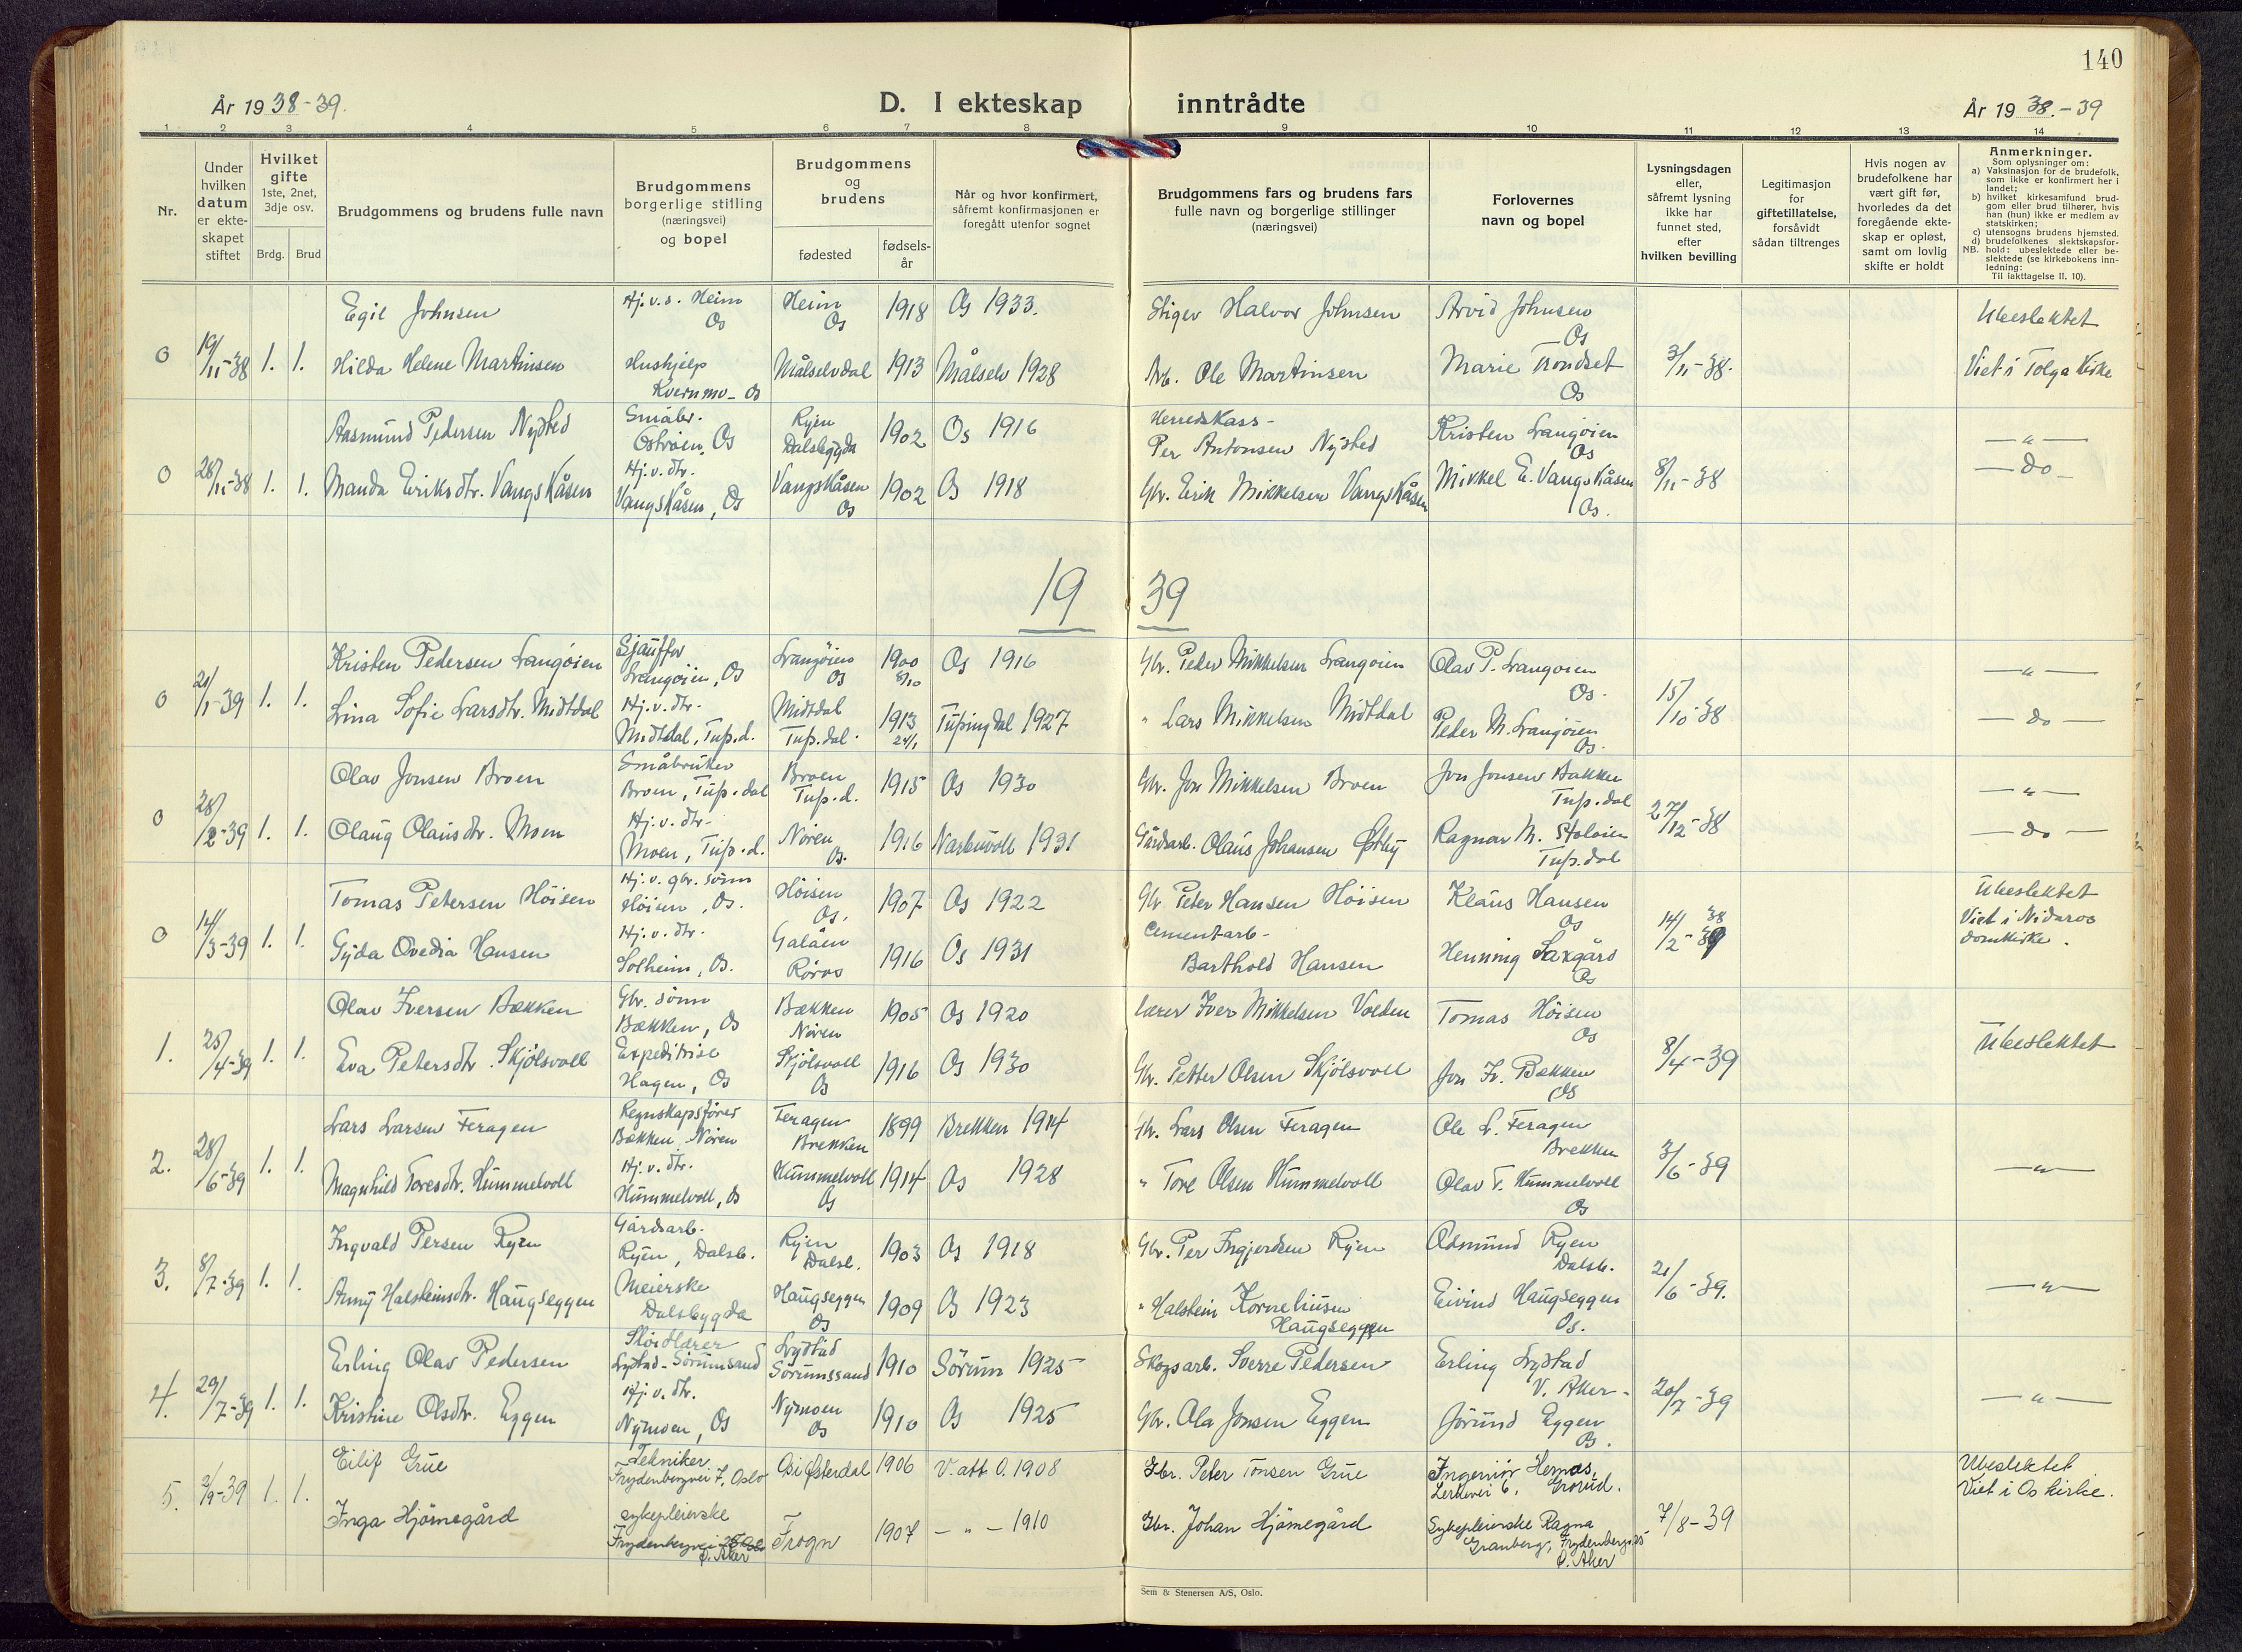 140
År 19 38-39.
D. I ekteskap inntrådte
År 19 38.-39
1 2 3 4 5 6 7 8 9 10 11 12 13 14
Nr.
Under hvilken datum er ekteskapet stiftet
Hvilket gifte
1ste, 2net, 3dje osv.
Brdg. Brud
Brudgommens og brudens fulle navn
Brudgommens borgerlige stilling (næringsvei) og bopel
Brudgommens og brudens
fødested
fødsels-år
Når og hvor konfirmert, såfremt konfirmasjonen er foregått utenfor sognet
Brudgommens fars og brudens fars fulle navn og borgerlige stillinger (næringsvei)
Forlovernes navn og bopel
Lysningsdagen eller, såfremt lysning ikke har funnet sted, efter hvilken bevilling
Legitimasjon for giftetillatelse, forsåvidt sådan tiltrenges
Hvis nogen av brudefolkene har vært gift før, hvorledes da det foregående ekteskap er opløst, samt om lovlig skifte er holdt
Anmerkninger.
Som oplysninger om:
a) Vaksinasjon for de brudefolk, som ikke er konfirmert her i landet;
b) hvilket kirkesamfund brudgom eller brud tilhører, hvis han (hun) ikke er medlem av statskirken;
c) utensogns brudens hjemsted.
d) brudefolkenes slektskapsforhold: ubeslektede eller beslektede (se kirkebokens innledning:
NB. Til iakttagelse II. 10).
Egil Johnsen Hj.v.s. Heim Os Heim Os 1918 Os 1933. Halvor Johnsen Arvid Johnsen Os Ubeslektet
0 19/11-38 1. 1. Hilda Helene Martinsen Hushjelp Kvernmo - Os Målselvdal 1913 Målselv 1928 Arb. Ole Martinsen Marie Trondset Os 3/11-38. Viet i Tolga Kirke
Aasmund Pedersen Nysted Småbr. Ostrøien, Os Ryen Dalsbygda 1902 Os 1916 Herredskass- Per Antonsen Nysted Kristen Langøien Os — " —
0 28/11-38 1. 1. Manda Eriksdtr. Vangskåsen Hj.v.dtr. Vangskåsen, Os Vangskåsen Os 1902 Os 1918 Gbr. Erik Mikkelsen Vangskåsen Mikkel E. Vangskåsen Os. 8/11-38 — do —
19 39
Kristen Pedersen Langøien Sjauffør Langøien, Os Langøien Os 1900 8/10 Os 1916 Gbr. Peder Mikkelsen Langøien Olav P. Langøien Os. — " —
0 21/1-39 1. 1. Lina Sofie Larsdtr. Midtdal Hj.v.dtr. Midtdal, Tuf.d. Midtdal Tuf.dal. 1913 24/1 Tufsingdal 1927 " Lars Mikkelsen Midtdal Peder M. Langøien Os. 15/10-38 — do —
Olav Jonsen Broen Småbruker Broen, Tuf.dal Broen Tuf.d. 1915 Os 1930 Gbr. Jon Mikkelsen Broen Jon Jonsen Bakken Tuf.dal — " —
0 28/2-39 1. 1. Olaug Olausdtr. Moen Hj.v.dtr. Moen, Tuf.d. Nøren Os. 1916 Narbuvoll 1931 Gårdsarb. Olaus Johansen Østby Ragnar M. Stoløien Tuf.dal 27/12-38 — do —
Tomas Petersen Høisen Hj.v. gbr. sønn Høisen, Os. Høisen Os. 1907 Os 1922 Gbr Peter Hansen Høisen Klaus Hansen Os Ubeslektet
0 14/3-39 1. 1. Gyda Ovedia Hansen Hj.v.dtr. Solheim, Os. Galåen Røros 1916 Os 1931 Cementarb- Barthold Hansen Henning Saxgård Os 14/2-39 38 Viet i Nidaros domkirke.
Olav Iversen Bækken Gbr. sønn Bækken, Os Bækken Nøren 1905 Os 1920 Lærer Iver Mikkelsen Volden Tomas Høisen Os
1. 25/4-39 1. 1. Eva Petersdtr. Skjølsvoll Expeditrise Hagen, Os Skjølsvoll Os 1916 Os 1930 Gbr. Petter Olsen Skjølsvoll Jon Iv. Bækken Os 8/4-39 Ubeslektet
Lars Larsen Feragen Regnskapsfører Bækken Nøren Feragen Brekken 1899 Brekken 1914 Gbr. Lars Olsen Feragen Ole L. Feragen Brekken
2. 28/6-39 1. 1. Magnhild Toresdtr. Hummelvoll Hj.v.dtr. Hummelvoll, Os Hummelvoll Os 1914 Os 1928 " Tore Olsen Hummelvoll Olav T. Hummelvoll Os 3/6-39 — " —
Ingvald Persen Ryen Gårdsarb. Ryen, Dalsb. Ryen Dalsb. 1903 Os 1918 Gbr. Per Ingjerdsen Ryen Ryen Dalsb.
3. 8/7-39 1. 1. Anny Halsteinsdtr. Haugseggen Meierske Dalsbygda Haugseggen Os 1909 Os 1923 " Halstein Korneliusen Haugseggen Eivind Haugseggen Os. 21/6-39. — " —
Erling Olav Pedersen Sløidlærer Lystad - Sørumsand Lystad Sørumssand 1910 Sørum 1925 Skogsarb. Sverre Pedersen Erling Lystad V. Aker-
4. 29/7-39 1. 1. Kristine Olsdtr. Eggen Hj.v.dtr. Nymoen, Os Nymoen Os 1910 Os 1925 Gbr. Ola Jonsen Eggen Jørund Eggen Os. 20/7-39 — " —
Eilif Grue Tekniker Frydenbergvei 7, Oslo Os i Østerdal 1906 V. att O. 1908 Gbr. Peter Tonsen Grue Ingeniør Hernæs, Lerkevei 6, Grorud. Ubeslektet
5. 2/9-39 1. 1. Inga Hjørnegård sykepleierske Frydenbergvei Ø. Aker Frogn 1907 — " — 1910 Gbr. Johan Hjørnegård Sykepleierske Ragna Granberg, Frydenbergv. Ø. Aker 7/8-39 Viet i Os kirke.
Sem & Stenersen A/S, Oslo.